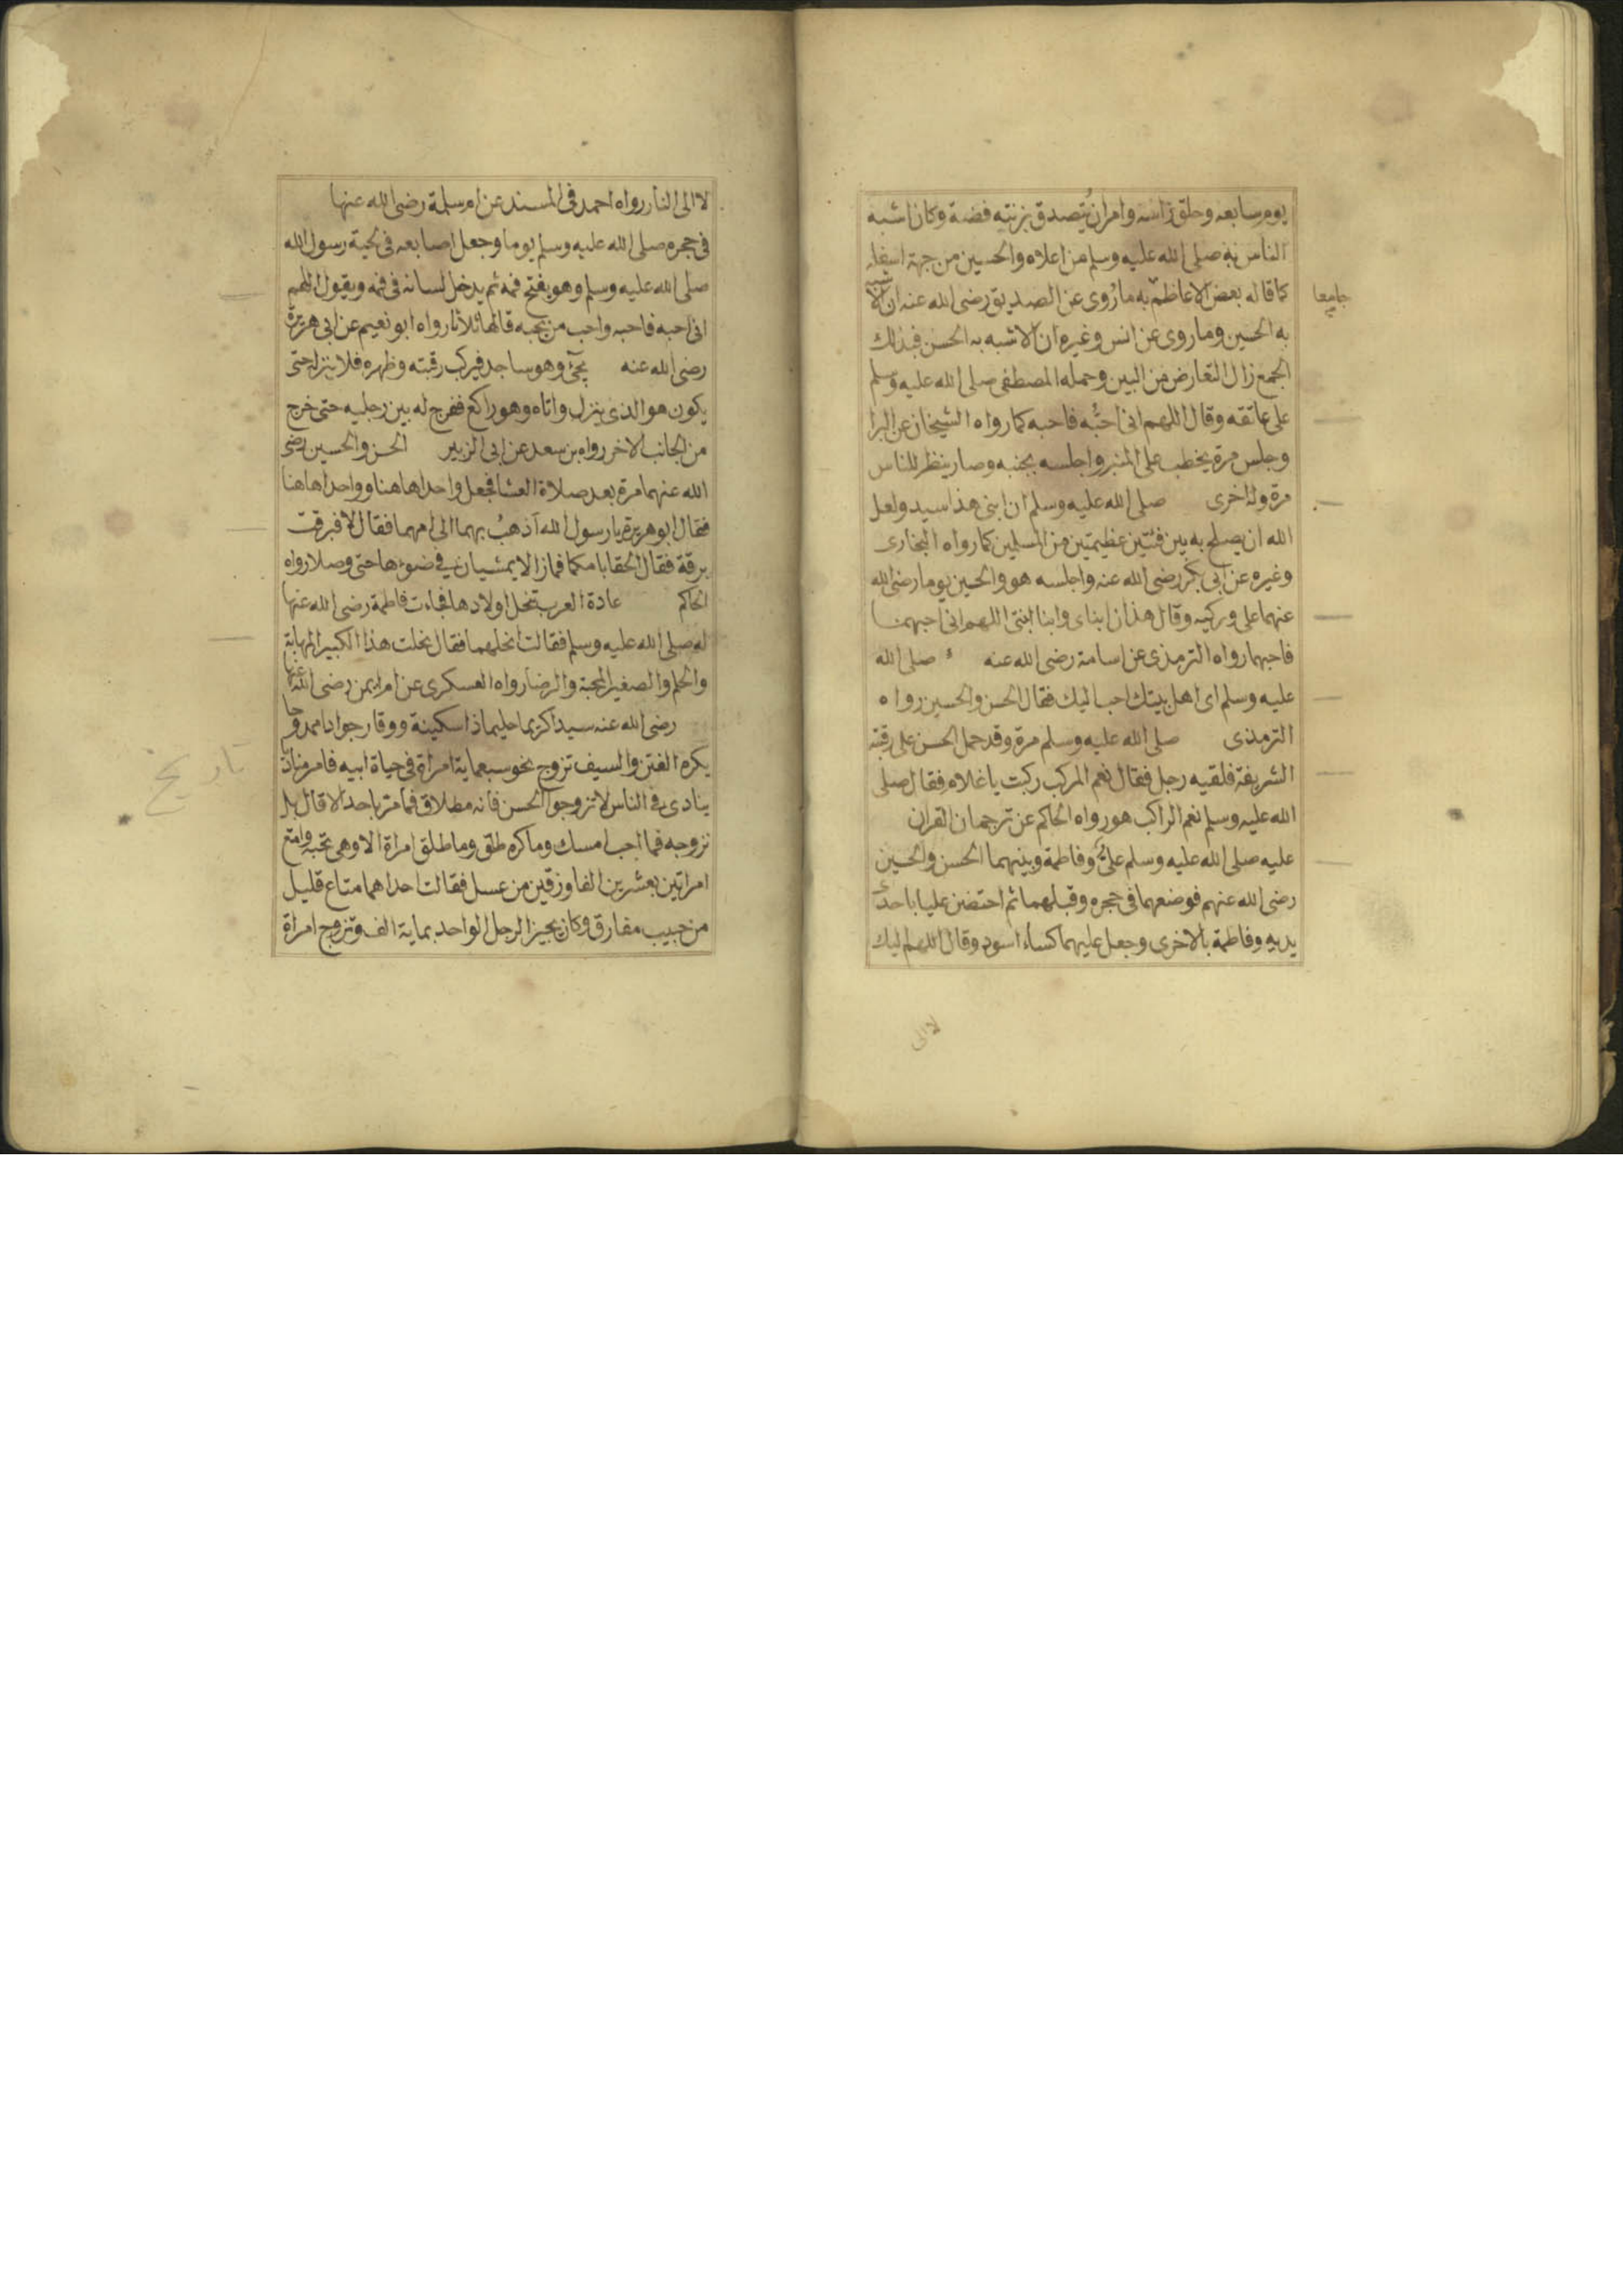 يوم سابعه وحلق راسه وامر ان يتصدق بزنته فضة وكان اشبه
الناس به صلى الله عليه وسلم من اعلاه والحسين من جهة اسفله
كما قاله بعض الاعاظم به ما روى عن الصديق رضى الله عنه ان الاشبه
جامعا
به الحسين وما روى عن انس وغيره ان الاشبه به الحسن فبذلك
الجمع زال التعارض من البين وحمله المصطفى صلى الله عليه وسلم
على عاتقه وقال اللهم انى احبه فاحبه كما رواه الشيخان عن البرا
وجلس مرة يخطب على المنبر واجلسه بجنبه وصار ينظر للناس
مرة وله اخرى صلى الله عليه وسلم ان ابنى هذا سيد ولعل
الله ان يصلح به بين فئتين عظيمتين من المسلمين كما رواه البخارى
وغيره عن ابى بكر رضى الله عنه واجلسه هو والحسين يوما رضى الله
عنهما على وركيه وقال هذان ابناى وابنا ابنتى اللهم انى احبهما
فاحبهما رواه الترمذى عن اسامة رضى الله عنه صلى الله
عليه وسلم اى اهل بيتك احب اليك فقال الحسن والحسين رواه
الترمذى صلى الله عليه وسلم مرة وقد حمل الحسن على رقبته
الشريفة فلقيه رجل فقال نعم المركب ركبت يا غلام فقال صلى
الله عليه وسلم نعم الراكب هو رواه الحاكم عن ترجمان القران
عليه صلى الله عليه وسلم على وفاطمة وبينهما الحسن والحسين
رضى الله عنهم فوضعهما فى حجره وقبلهما ثم احتضن عليا باحدى
يديه وفاطمة بالاخرى وجعل عليهما كساء اسود وقال اللهم اليك
لا الى
لا الى النار رواه احمد فى المسند عن ام سلمة رضى الله عنها
فى حجره صلى الله عليه وسلم يوما وجعل اصابعه فى لحية رسول الله
صلى الله عليه وسلم وهو يفتح فمه ثم يدخل لسانه فى فمه ويقول اللهم
انى احبه فاحبه واحب من يحبه قالها ثلاثا رواه ابو نعيم عن ابى هريرة
رضى الله عنه يجئ وهو ساجد فيركب رقبته وظهره فلا ينزله حتى
يكون هو الذى ينزل واتاه وهو راكع ففرج له بين رجليه حتى خرج
من الجانب الاخر رواه بن سعد عن ابى الزبير الحسن والحسين رضى
الله عنهما مرة بعد صلاة العشا فجعل واحدا هاهنا وواحدا هاهنا
فقال ابو هريرة يا رسول الله اذهب بهما الى امهما فقال لا فبرقت
برقة فقال الحقا بامكما فما زالا يمشيان فى ضوءها حتى وصلا رواه
الحاكم عادة العرب تنحل اولادها فجاءت فاطمة رضى الله عنها
له صلى الله عليه وسلم فقالت انحلهما فقال نحلت هذا الكبير المهابة
والحلم والصغير المحبة والرضا رواه العسكرى عن ام ايمن رضى الله عنها
رضى الله عنه سيدا كريما حليما ذا سكينة ووقار جوادا ممدوحا
يكره الفتن والسيف تزوج نحو سبعماية امراة فى حياة ابيه فامر مناد
ينادى فى الناس لا تزوجوا الحسن فانه مطلاق فما مر باحد الا قال بل
نزوجه فما احب امسك وما كره طلق وما طلق امراة الا وهى تحبه وامتع
امراتين بعشرين الفا وزقين من عسل فقالت احداهما متاع قليل
من حبيب مفارق وكان يجيز الرجل الواحد بماية الف وتزوج امراة
تاريخ